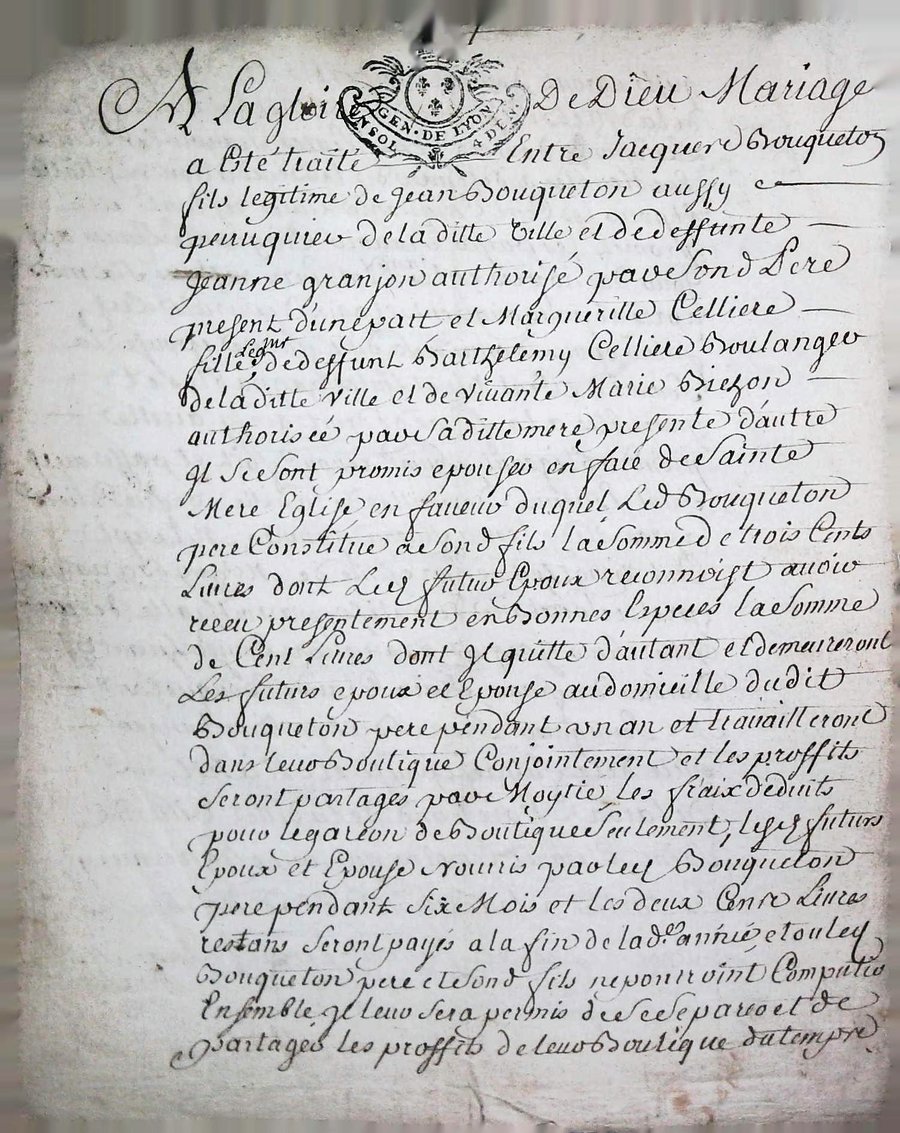 A La gloire De Dieu Mariage
GEN · DE LYON
4 DEN.
a Esté traité Entre Jacques Bouqueton
fils legitime de Jean Bouqueton aussy
perruquier de la ditte Ville et de deffunte
Jeanne granjon authorisé par sond Pere
present d'une part et Margueritte Celliere
fille Legme de deffunt Barthelemy Celliere Boulanger
de la ditte Ville et de vivante Marie
authorisée par sa ditte mere presente d'autre
Il se sont promis epouser en face de Sainte
Mere Eglise en faveur duquel Led Bouqueton
pere Constitue a sond fils la somme de trois Cents
Livres dont Led futur Epoux reconnoist avoir
receu presentement en Bonnes Especes la Somme
de Cent Livres dont Il quitte d'autant et demeureront
Les futurs epoux et Epouse au domicille dudit
Bouqueton pere pendant un an et travailleront
dans leur Boutique Conjointement et les proffits
Seront partages par Moytié les fraix deduits
pour le garcon de Boutique Seulement, lesd futurs
Epoux et Epouse Nourris par led Bouqueton
pere pendant Six Mois et les deux Cents Livres
restans Seront payés a la fin de lade année, et ou led
Bouqueton pere et sond fils ne pourroint
Ensemble Il leur sera permis de se Separer et de
partager les proffits de leur Boutique du tempre